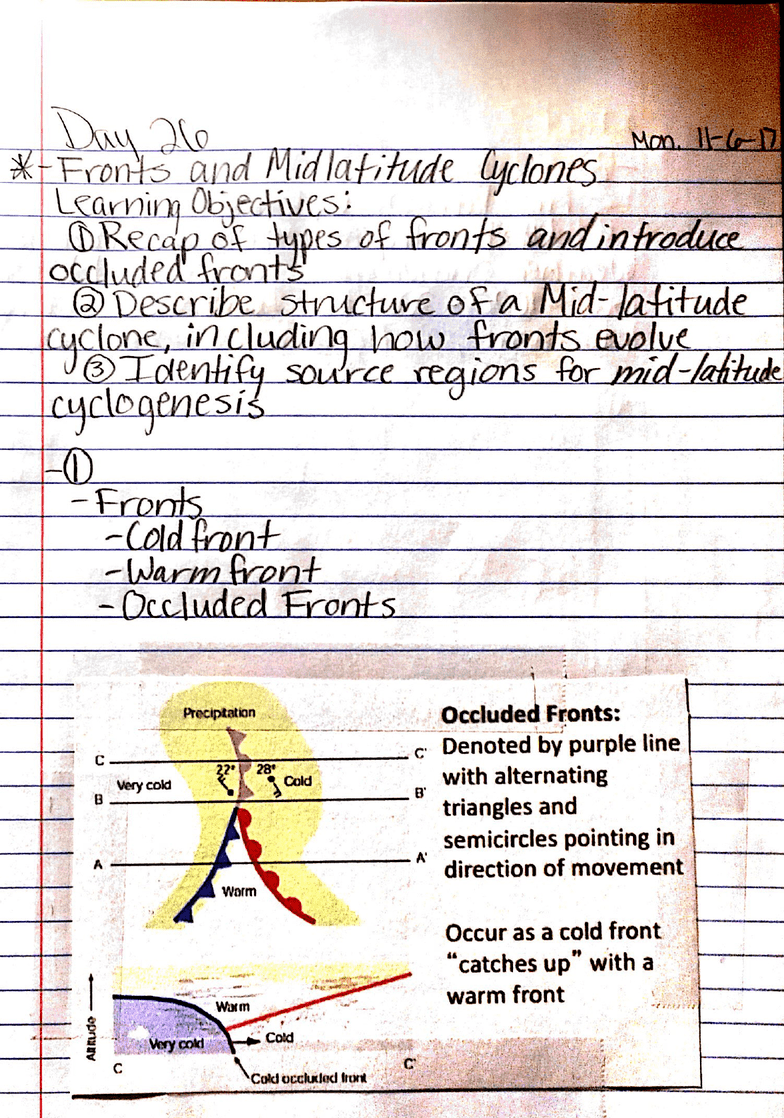 Day 26
Mon. 11-6-17
*-Fronts and Midlatitude Cyclones
Learning Objectives:
① Recap of types of fronts and introduce
occluded fronts
② Describe structure of a Mid-latitude
cyclone, including how fronts evolve
③ Identify source regions for mid-latitude
cyclogenesis
-①
-Fronts
-Cold front
-Warm front
-Occluded Fronts
Precipitation
C C'
22° 28°
Very cold Cold
B B'
A A'
Warm
Occluded Fronts:
Denoted by purple line
with alternating
triangles and
semicircles pointing in
direction of movement
Occur as a cold front
"catches up" with a
warm front
Altitude
Warm
Very cold
Cold
C C'
Cold occluded front